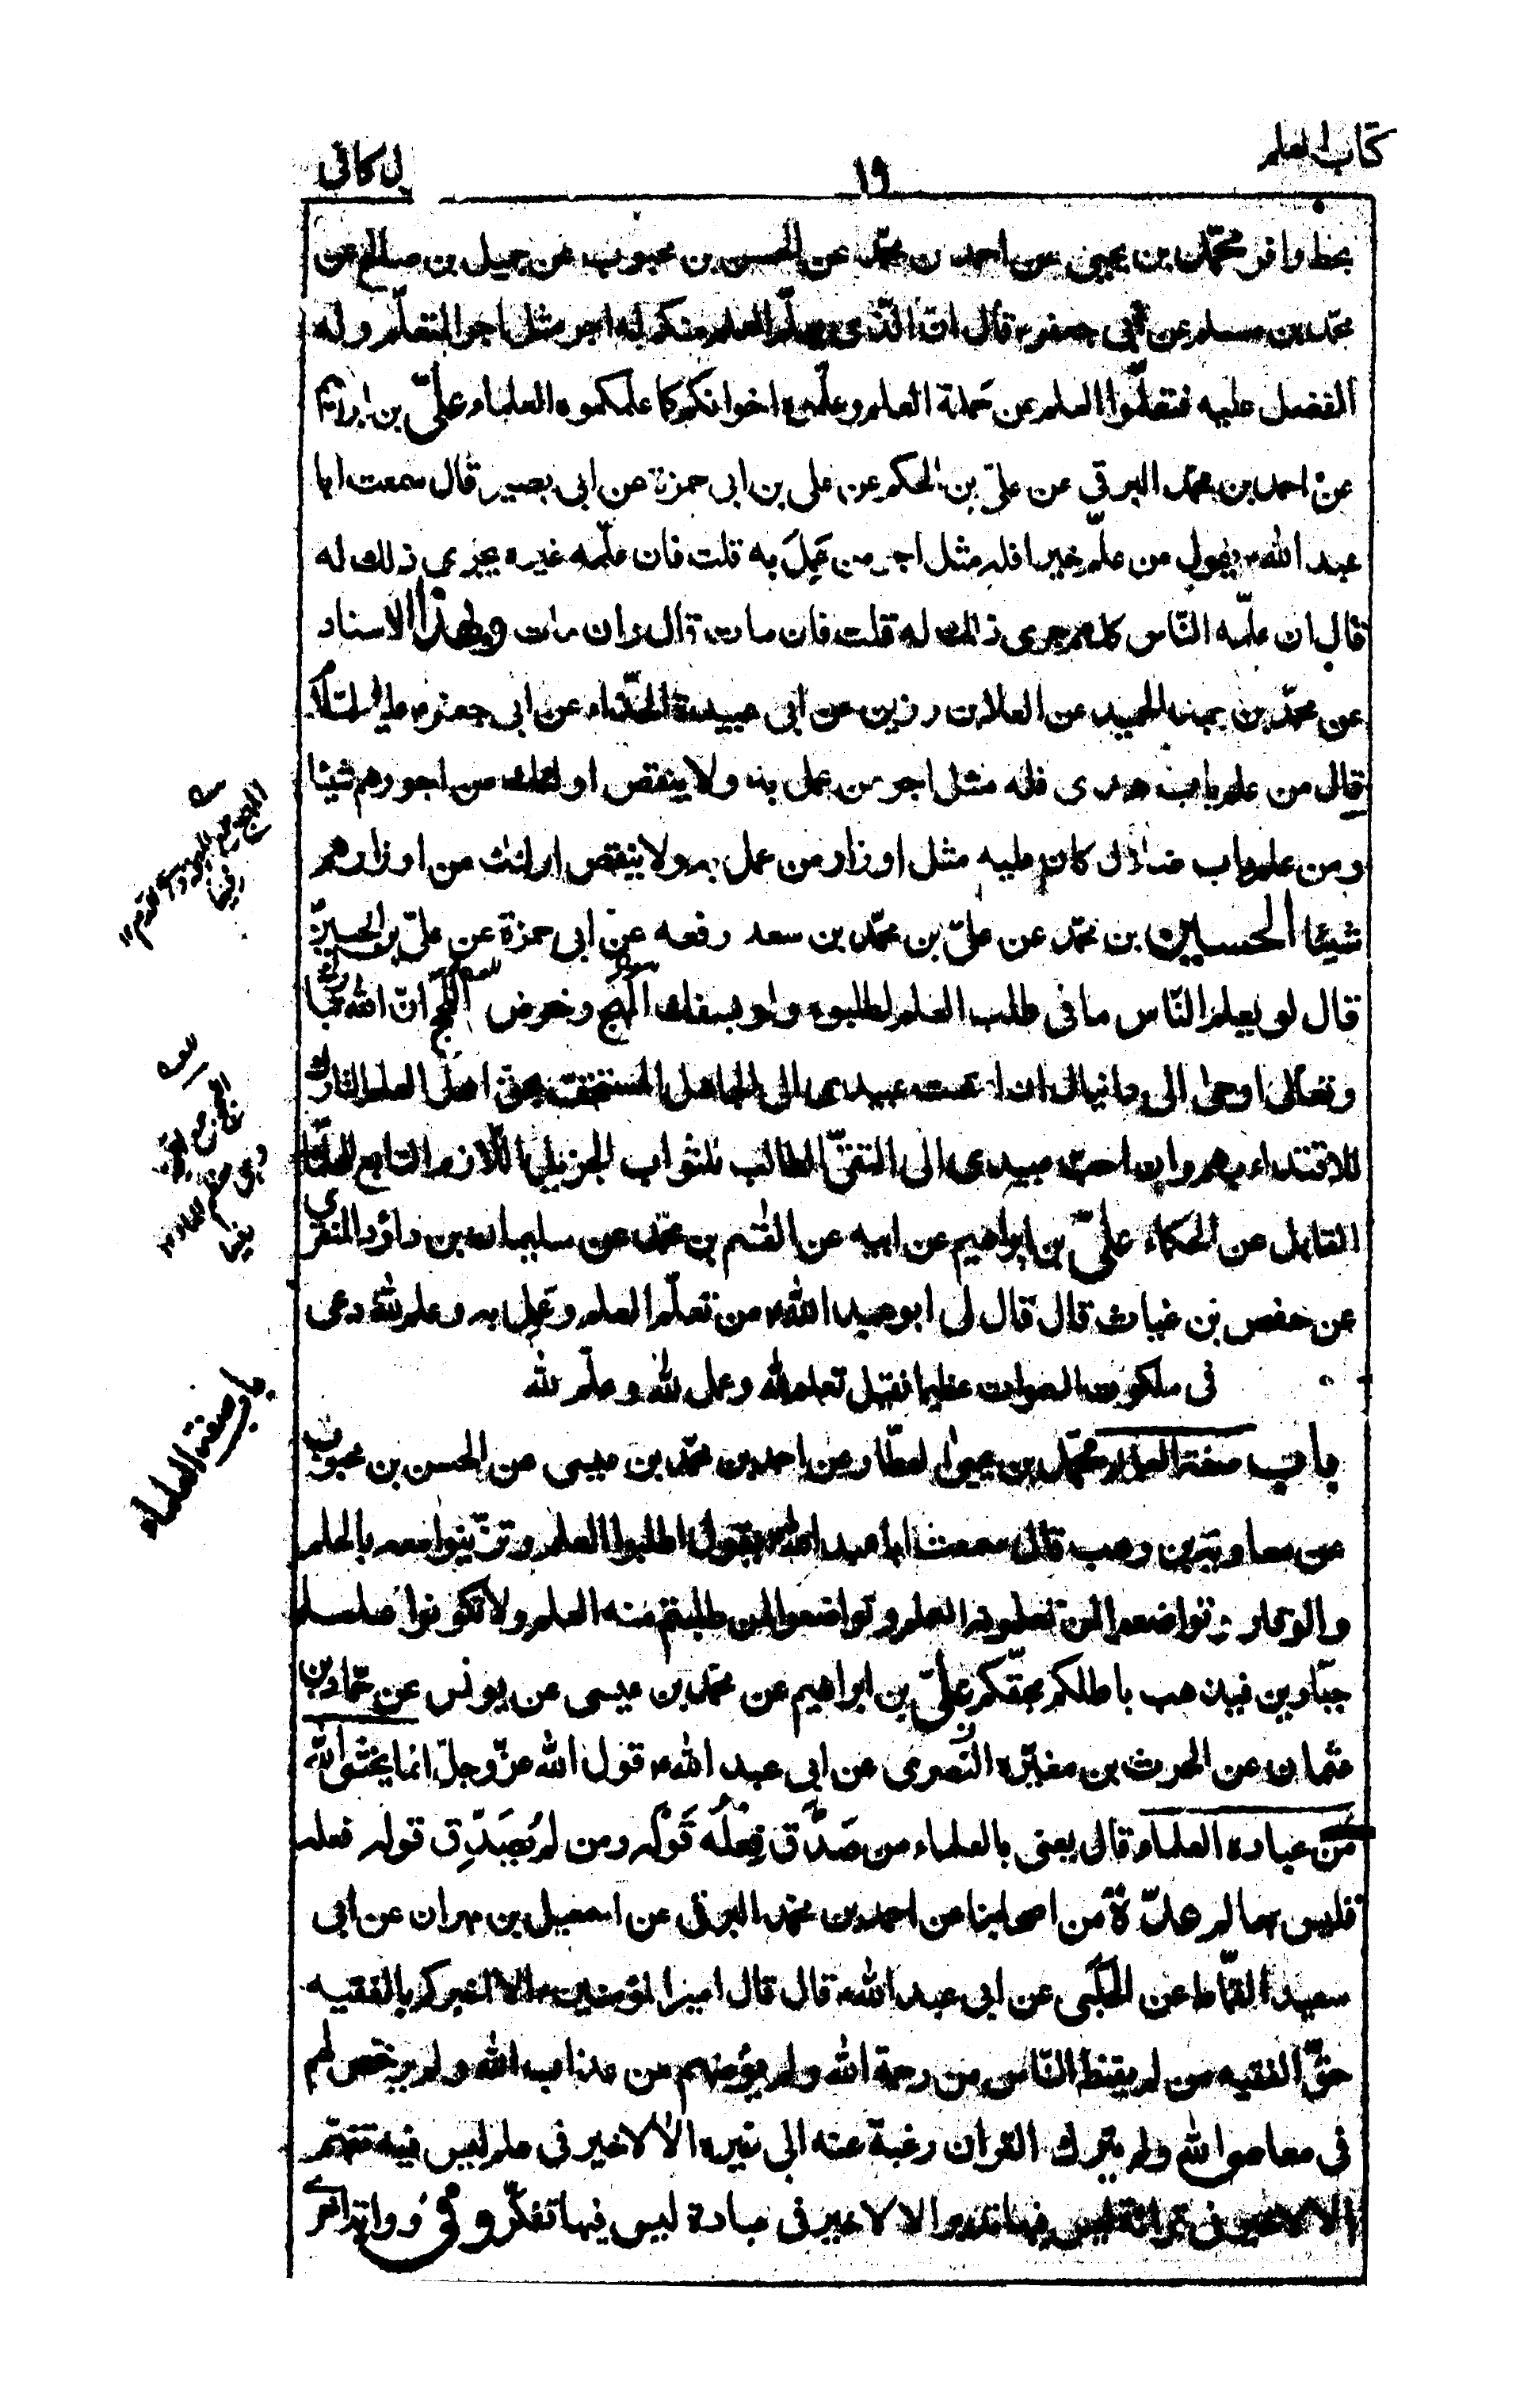 كتاب العلم
١٩
ل كافى
بحظ وافر محمّد بن يحيى عن احمد بن محمّد عن الحسن بن محبوب عن جميل بن صالح عن
محمّد بن مسلم عن أبى جعفرء قال انّ الّذى يعلّم العلم منكم له اجر مثل اجر المتعلّم وله
الفضل عليه فتعلّموا العلم من حملة العلم وعلّموه اخوانكم كما علمكموه العلماء علىّ بن ابراهيم
عن احمد بن محمّد البرقى عن علىّ بن الحكم عن على بن ابى حمزة عن ابى بصير قال سمعت ابا
عبد اللهء يقول من علّم خيرا فله مثل اجر من عَمِلَ به قلت فان علّمه غيره يجزى ذلك له
قال ان علّمه النّاس كلهم جرى ذلك له قلت فان مات قال وان مات وبهذا الاسناد
عن محمّد بن عبد الحميد عن العلا بن رزين عن ابى عبيدة الحذّاء عن ابى جعفرء عليه السّلام
قال من علم باب هدى فله مثل اجر من عمل به ولا ينقص اولئك من اجورهم شيئا
ومن علم باب ضلال كان عليه مثل اوزار من عمل به ولا ينقص اولئك من اوزارهم
شيئا الحسين بن محمّد عن علىّ بن محمّد بن سعد رفعه عن ابى حمزة عن علىّ بن الحسينّ
قال لو يعلم النّاس ما فى طلب العلم لطلبوه ولو بسفك المهج وخوض اللّجج انّ الله تبارك
وتعالى اوحى الى دانيال ان امقت عبيدى الى الجاهل المستخف بحق اهل العلم التارك
للاقتداء بهم وان احبّ عبيدى الى التقىّ الطالب للثواب الجزيل اللّازم للعلماء التابع
القابل عن الحكماء علىّ بن ابراهيم عن ابيه عن القسم بن محمّد عن سليمان بن داؤد المنقرى
عن حفص بن غياث قال قال لى ابو عبد اللهء من تعلّم العلم وعمل به وعلم لله دعى
فى ملكوت السموات عظيما فقيل تعلم لله وعمل لله وعلّم لله
باب صفة العلماء محمّد بن يحيى العطّار عن احمد بن محمّد بن عيسى عن الحسن بن محبوب
عن معاوية بن وهب قال سمعت ابا عبد اللهء يقول اطلبوا العلم وتزيّنوا معه بالحلم
والوقار وتواضعوا لمن تعلمونه العلم وتواضعوا لمن طلبتم منه العلم ولا تكونوا علماء
جبّارين فيذهب باطلكم بحقّكم علىّ بن ابراهيم عن محمّد بن عيسى عن يونس عن حمّاد بن
عثمان عن الحرث بن مغيرة النّصرى عن ابى عبد اللهء قول الله عزّ وجلّ انما يخشى الله
من عباده العلماء قال يعنى بالعلماء من صَدَّق فِعلُه قَولَه ومن لم يُصَدِّق قوله فعله
فليس بعالم عدّة من اصحابنا عن احمد بن محمّد البرقى عن اسمعيل بن مهران عن ابى
سعيد القمّاط عن الحلبى عن ابى عبد اللهء قال قال امير المؤمنينء الا اخبركم بالفقيه
حقّ الفقيه من لم يقنط النّاس من رحمة الله ولم يؤمنهم من عذاب الله ولم يرخص لهم
فى معاصى الله ولم يترك القران رغبة عنه الى غيره الا لا خير فى علم ليس فيه تفهّم
الا لا خير فى قرائة ليس فيها تدبر الا لا خير فى عبادة ليس فيها تفكّر وفى رواية اخرى
باب صفة العلماء